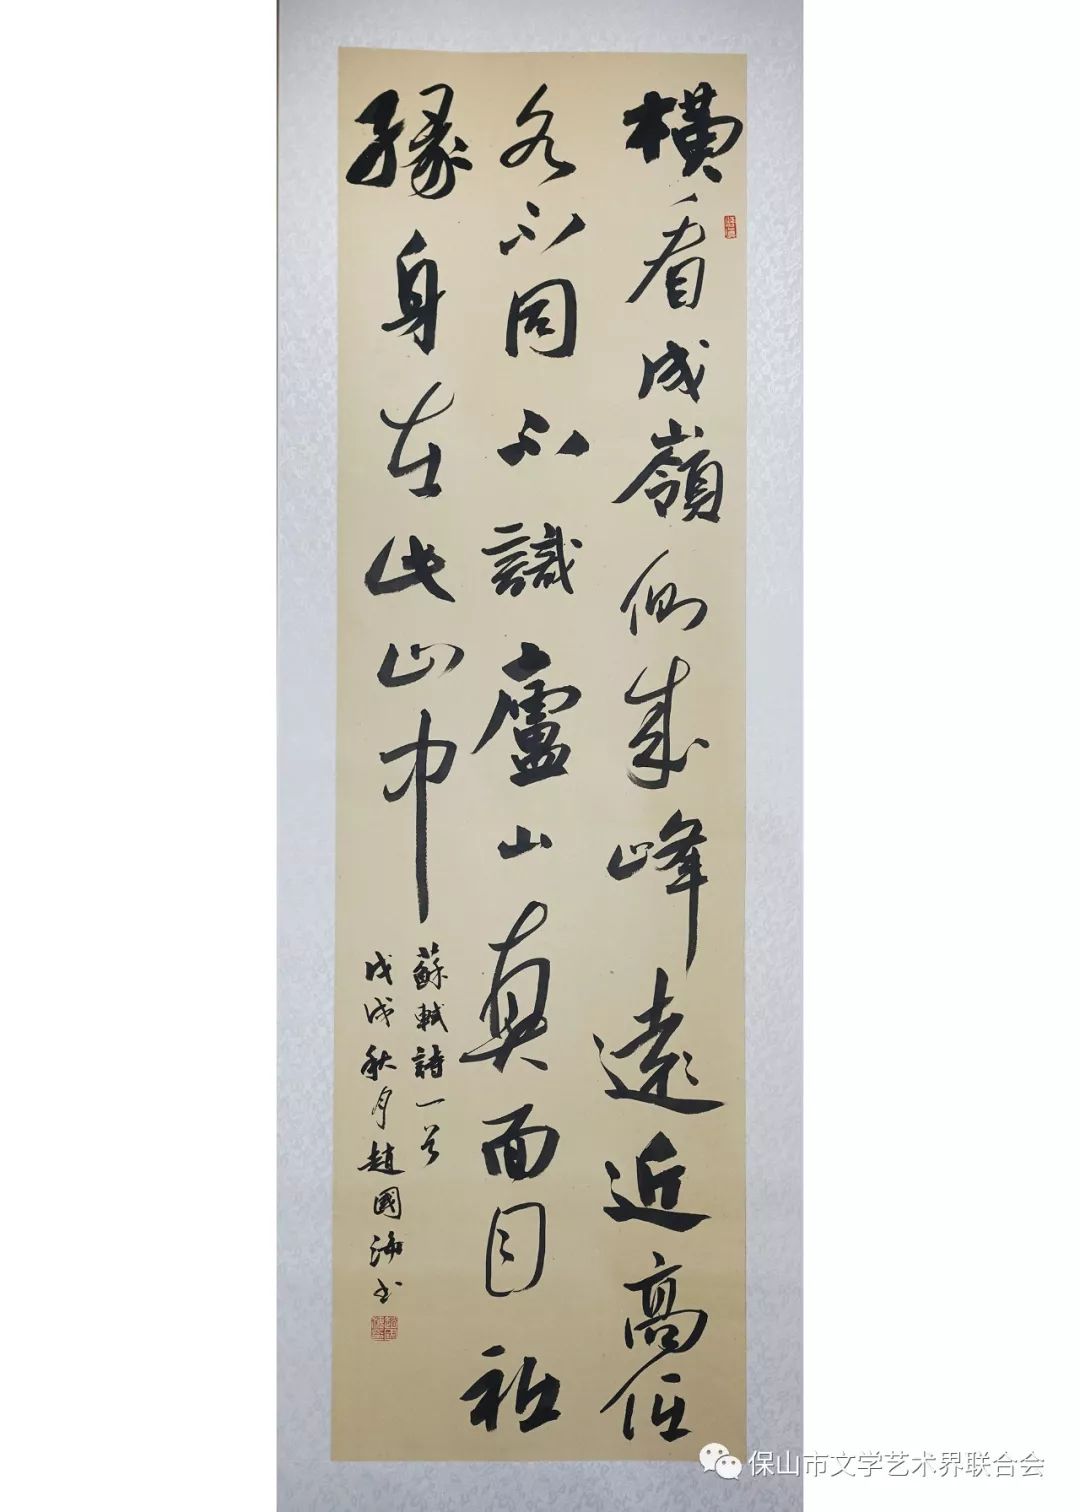 橫看成嶺側成峰遠近高低
各不同不識廬山真面目祗
緣身在此山中
蘇軾詩一首
戊戌秋月趙國海书
保山市文学艺术界联合会